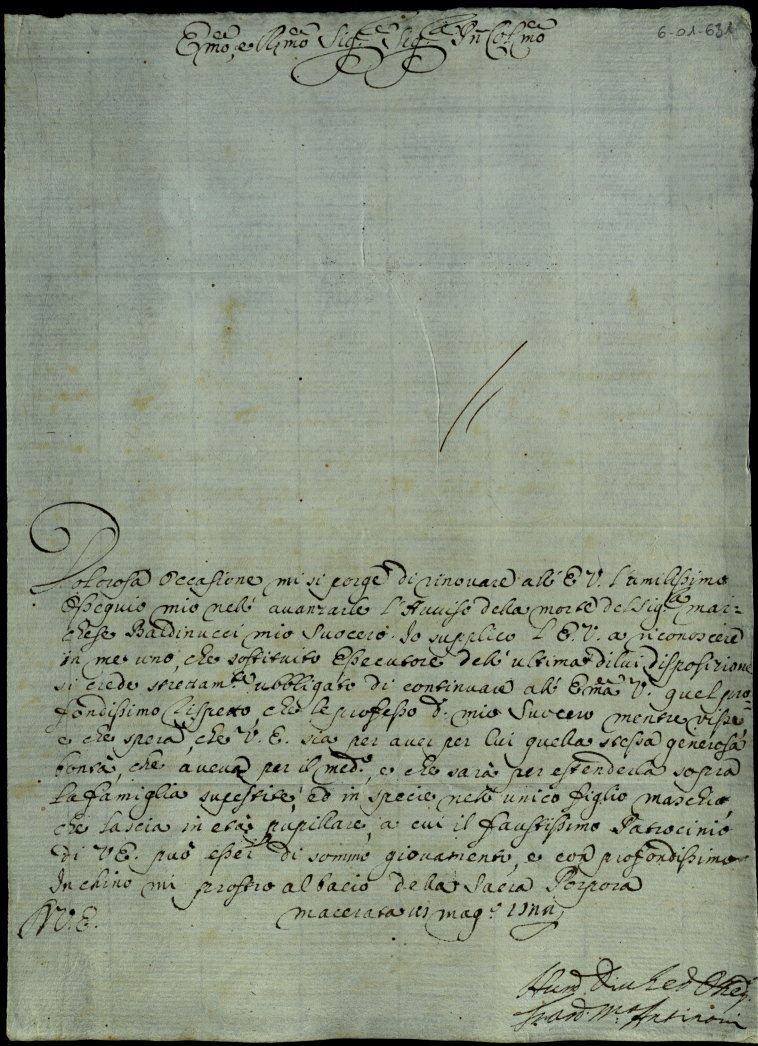 Em̃o, e Rm̃o Sig.re Sig.re Pñ Col.mo
6-01-631
Dolorosa Occasione mi si porge di rinovare all' E V. l'umilissimo
Ossequio mio nell' avanzarle l'Avviso della morte del Sig.r Mar-
chese Baldinucci mio Suocero. Io supplico l' E. V. a riconoscere
in me uno, che sostituito Essecutore dell' ultima di lui disposizione
si crede strettam.te ubbligato di continuare all' Em̃a V.a quel pro-
fondissimo Rispetto, che le professò d.o mio Suocero mentre visse
e che spera, che V. E. sia per aver per lui quella stessa generosa
bontà, che aveva per il med.o, e che sarà per estenderla sopra
la famiglia superstite, ed in specie nell' unico figlio maschio
che lascia in età pupillare, a cui il faustissimo Patrocinio
di V E. può esser di sommo giovamento, e con profondissimo
Inchino mi prostro al bacio della Sacra Porpora
D V. E. Macerata Mag.o
Um̃o Div.